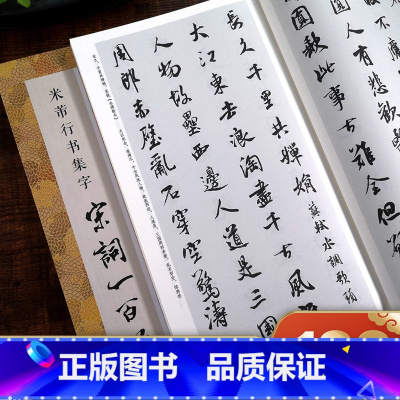 人有悲歡
此事古難全但
長久千里共嬋娟 蘇軾水調歌頭
大江東去浪淘盡千古風
人物故壘西邊人道是三國
周郎赤壁亂石穿空驚濤
米芾行书集字
宋詞一百
正版图书 品质保证